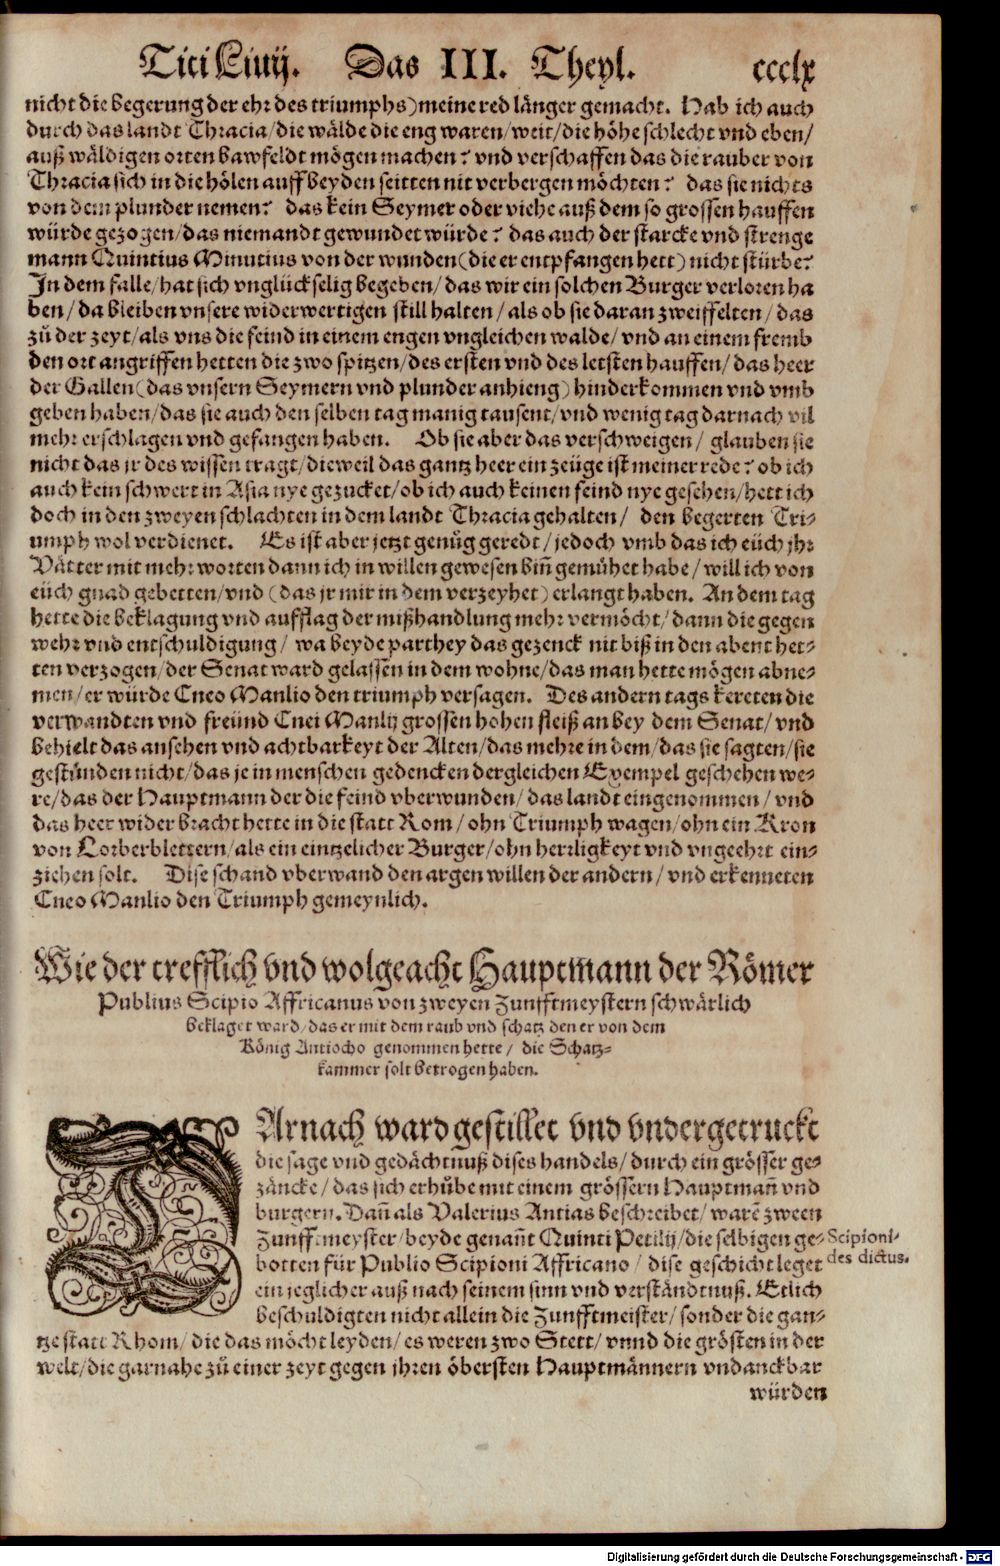 Titi Liuij. Das III. Theyl. ccclx
nicht die begerung der ehr des triumphs) meine red länger gemacht. Hab ich auch
durch das landt Thracia/ die wälde die eng waren/ weit/ die höhe schlecht vnd eben/
auß wäldigen orten bawfeldt mögen machen? vnd verschaffen das die rauber von
Thracia sich in die hölen auff beyden seitten nit verbergen möchten? das sie nichts
von dem plunder nemen? das kein Seymer oder viehe auß dem so grossen hauffen
würde gezogen/ das niemandt gewundet würde? das auch der starcke vnd strenge
mann Quintius Minutius von der wunden (die er entpfangen hett) nicht stürbe?
In dem falle/ hat sich vnglückselig begeben/ das wir ein solchen Burger verloren ha
ben/ da bleiben vnsere widerwertigen still halten/ als ob sie daran zweiffelten/ das
zů der zeyt/ als vns die feind in einem engen vngleichen walde/ vnd an einem fremb
den ort angriffen hetten die zwo spitzen/ des ersten vnd des letsten hauffen/ das heer
der Gallen (das vnsern Seymern vnd plunder anhieng) hinderkommen vnd vmb
geben haben/ das sie auch den selben tag manig tausent/ vnd wenig tag darnach vil
mehr erschlagen vnd gefangen haben. Ob sie aber das verschweigen/ glauben sie
nicht das jr des wissen tragt/ dieweil das gantz heer ein zeüge ist meiner rede? ob ich
auch kein schwert in Asia nye gezucket/ ob ich auch keinen feind nye gesehen/ hett ich
doch in den zweyen schlachten in dem landt Thracia gehalten/ den begerten Tri-
umph wol verdienet. Es ist aber jetzt genůg geredt/ jedoch vmb das ich eüch jhr
Vätter mit mehr worten dann ich in willen gewesen biñ gemühet habe/ will ich von
eüch gnad gebetten/ vnd (das jr mir in dem verzeyhet) erlangt haben. An dem tag
hette die beklagung vnd aufflag der mißhandlung mehr vermöcht/ dann die gegen
wehr vnd entschuldigung/ wa beyde parthey das gezenck nit biß in den abent het-
ten verzogen/ der Senat ward gelassen in dem wohne/ das man hette mögen abne-
men/ er würde Cneo Manlio den triumph versagen. Des andern tags kereten die
verwandten vnd freünd Cnei Manlij grossen hohen fleiß an bey dem Senat/ vnd
behielt das ansehen vnd achtbarkeyt der Alten/ das mehre in dem/ das sie sagten/ sie
gestünden nicht/ das je in menschen gedencken dergleichen Exempel geschehen we-
re/ das der Hauptmann der die feind vberwunden/ das landt eingenommen/ vnd
das heer wider bracht hette in die statt Rom/ ohn Triumph wagen/ ohn ein Kron
von Lorberblettern/ als ein eintzelicher Burger/ ohn herrligkeyt vnd vngeehrt ein-
ziehen solt. Dise schand vberwand den argen willen der andern/ vnd erkenneten
Cneo Manlio den Triumph gemeynlich.
Wie der trefflich vnd wolgeacht Hauptmann der Römer
Publius Scipio Affricanus von zweyen Zunfftmeystern schwärlich
beklaget ward/ das er mit dem raub vnd schatz den er von dem
König Antiocho genommen hette/ die Schatz-
kammer solt betrogen haben.
DArnach ward gestillet vnd vndergetruckt
die sage vnd gedächtnuß dises handels/ durch ein grösser ge-
zäncke/ das sich erhůbe mit einem grössern Hauptmañ vnd
burgern. Dañ als Valerius Antias beschreibet/ warẽ zween
Zunfftmeyster/ beyde genañt Quinti Petilij/ die selbigen ge-
botten für Publio Scipioni Affricano/ dise geschicht leget
ein jeglicher auß nach seinem sinn vnd verständtnuß. Etlich
beschuldigten nicht allein die Zunfftmeister/ sonder die gan-
tze statt Rhom/ die das möcht leyden/ es weren zwo Stett/ vnnd die grösten in der
welt/ die garnahe zů einer zeyt gegen jhren öbersten Hauptmännern vndanckbar
würden
Scipioni-
des dictus.
Digitalisierung gefördert durch die Deutsche Forschungsgemeinschaft - DFG